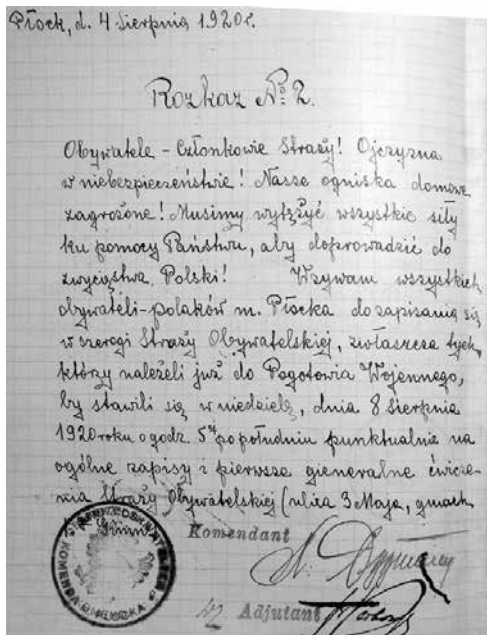 Płock, d. 4 Sierpnia 1920 r.
Rozkaz № 2.
Obywatele - Członkowie Straży! Ojczyzna
w niebezpieczeństwie! Nasze ogniska domowe
zagrożone! Musimy wytężyć wszystkie siły
ku pomocy Państwu, aby doprowadzić do
zwycięstwa Polski! Wzywam wszystkich
obywateli-polaków m. Płocka do zapisania się
w szeregi Straży Obywatelskiej, zwłaszcza tych,
którzy należeli już do Pogotowia Wojennego,
by stawili się w niedzielę, dnia 8 Sierpnia
1920 roku o godz. 5 tej po południu punktualnie na
ogólne zapisy i pierwsze gieneralne ćwicze-
nia Straży Obywatelskiej (ulica 3 Maja, gmach
Komendant
Adjutant